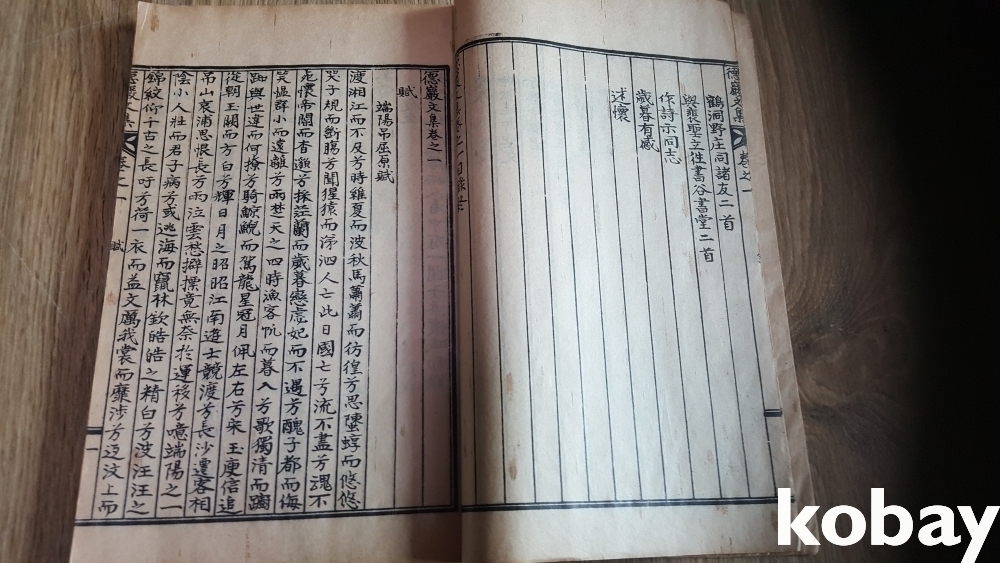 德巖文集 卷之一
鶴洞野庄同諸友二首
與裴聖立性書谷書堂二首
作詩示同志
歲暮有感
述懷
德巖文集卷之一
賦
端陽吊屈原賦
渡湘江而不及兮時維夏而波秋馬蕭蕭而彷徨兮思蓴而悠悠
哭子規而斷膓兮聞猩猿而涕泗人亡此日國亡兮流不盡兮魂不
懷帝閽而杳邈兮採茳蘭而歲暮戀虙妃而不遇兮醜子都而侮
笑慍群小而遠離兮兩楚天之四時漁客帆而暮入兮歌獨清而
與世違而何撩兮騎鯨鯢而駕龍星冠月佩左右兮宋玉庾信追
從朝玉闕而方白兮輝日月之昭昭江南遊士競渡兮長沙遷客相
吊山哀浦思恨長兮雨泣雲愁擗摽竟無奈於運移兮噫端陽之一
陰小人壯而君子病兮或逃海而竄林欽皓皓之精白兮波汪汪之
錦紋仰千古之長吁兮荷一衣而益文厲我裳而靡涉兮迢汶上而
德巖文集 卷之一 賦 一
kobay